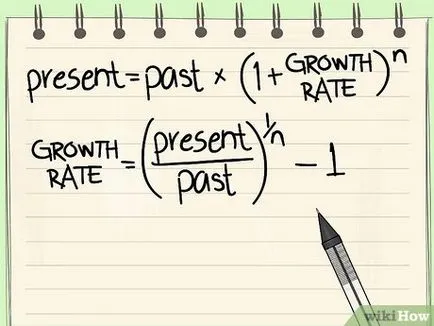 present = past × (1 + GROWTH RATE)ⁿ
GROWTH RATE = (present/past)^1/n − 1
wikiHow